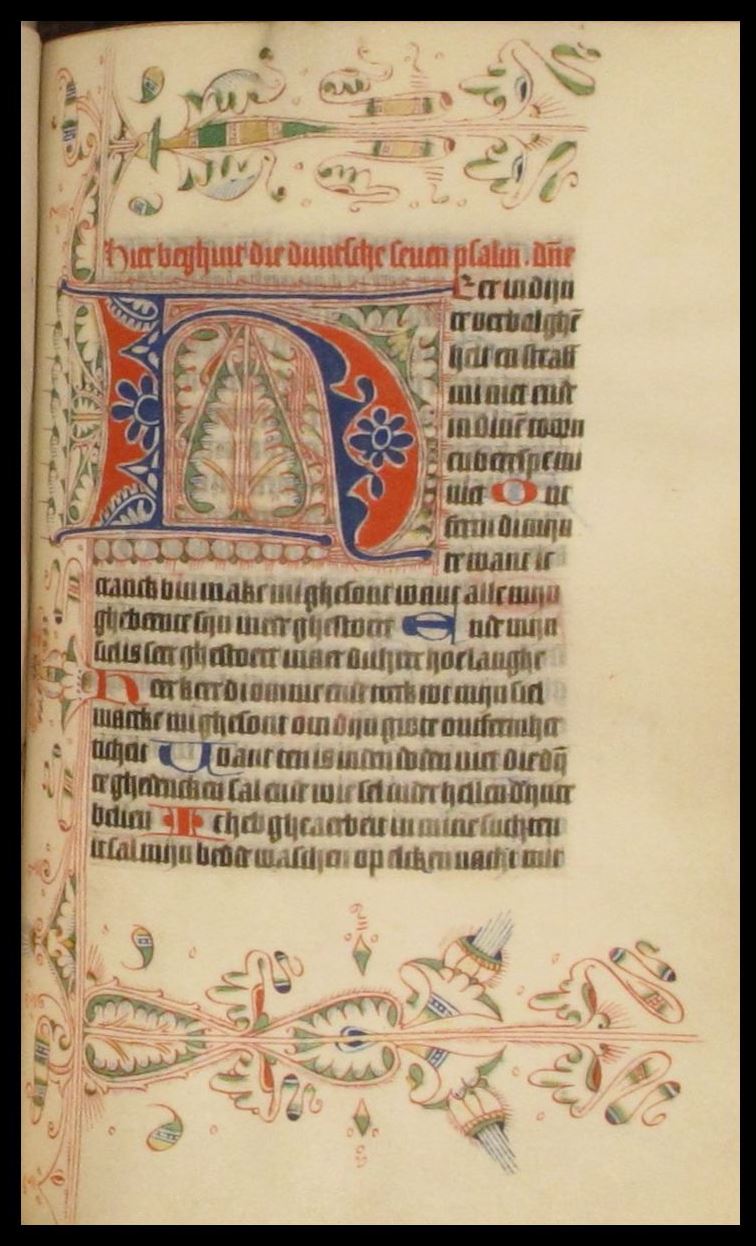 Hier beghint die duutsche seuen psalm . dn̄e
HEer in dijn
er verbolghē
heit en straff
mi niet ende
in dinē toorn
en berispe mi
niet Ont
ferm di mijn
re want ic
cranck bin make mi ghesont want alle mijn
ghebeente sijn ghestoert Ende mijn
siel is seer ghestoert du here hoe langhe
Heer keer di omme ende treck wt mijn siel
maecke mi ghesont om dijn grote ontfermher
ticheit Want ten is in den doden niet die dij̄
er ghedencken sal ende wie sel in der hellen dijnre
belien Ic heb ghearbeit in mine suchten
ic sal mijn bedde waschen op elcken nacht mit